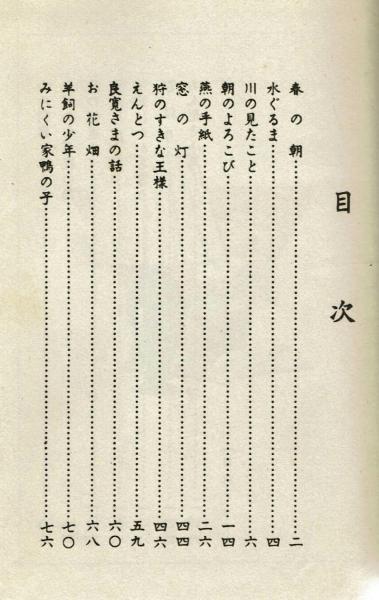 目次
春の朝……二
水ぐるま……四
川の見たこと……六
朝のよろこび……一四
燕の手紙……二六
窓の灯……四四
狩のすきな王様……四六
えんとつ……五九
良寛さまの話……六〇
お花畑……六八
羊飼の少年……七〇
みにくい家鴨の子……七六